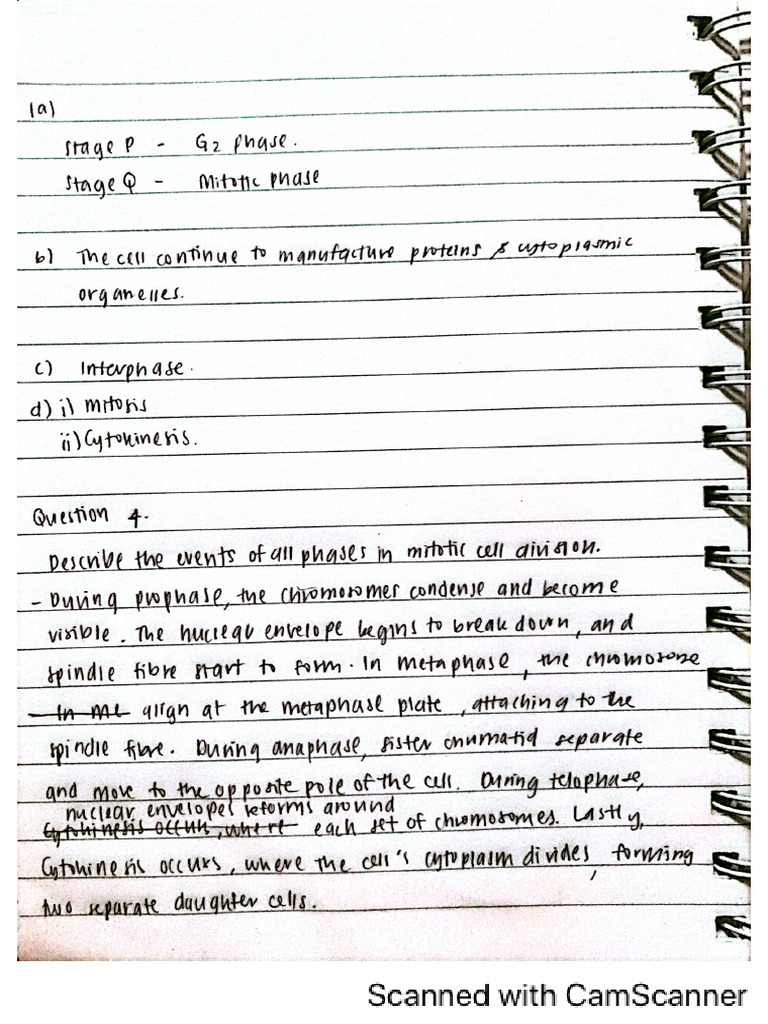 1a)
Stage P - G2 phase.
Stage Q - Mitotic phase
b) The cell continue to manufacture proteins & cytoplasmic
organelles.
c) Interphase.
d) i) Mitosis
ii) Cytokinesis.
Question 4.
Describe the events of all phases in mitotic cell division.
- During prophase, the chromosomes condense and become
visible. The nuclear envelope begins to break down, and
spindle fibre start to form. In metaphase, the chromosome
In me align at the metaphase plate, attaching to the
spindle fibre. During anaphase, sister chromatid separate
and move to the opposite pole of the cell. During telophase,
nuclear envelopes reforms around
Cytokinesis occurs, where each set of chromosomes. Lastly,
Cytokinesis occurs, where the cell's cytoplasm divides, forming
two separate daughter cells.
Scanned with CamScanner